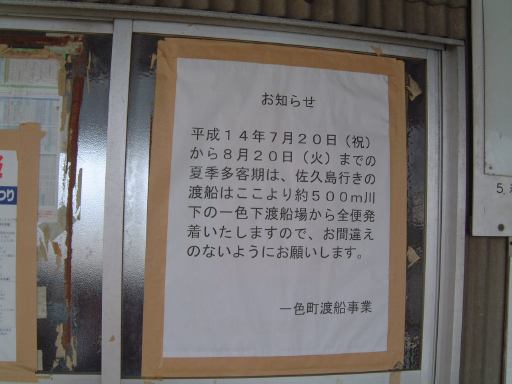 お知らせ
平成１４年７月２０日（祝）
から８月２０日（火）までの
夏季多客期は、佐久島行きの
渡船はここより約５００ｍ川
下の一色下渡船場から全便発
着いたしますので、お間違え
のないようにお願いします。
一色町渡船事業
つり
5.